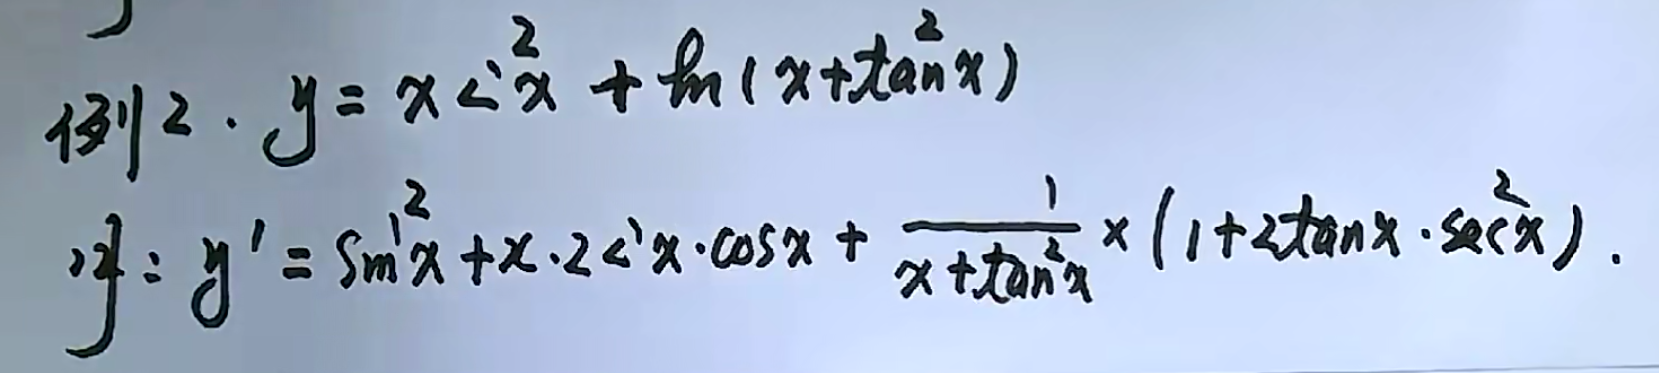 例2. y = x sin²x + ln(x+tan²x)
解: y' = sin²x + x·2 sin x·cosx + 1/(x+tan²x) × (1+2tanx·sec²x).